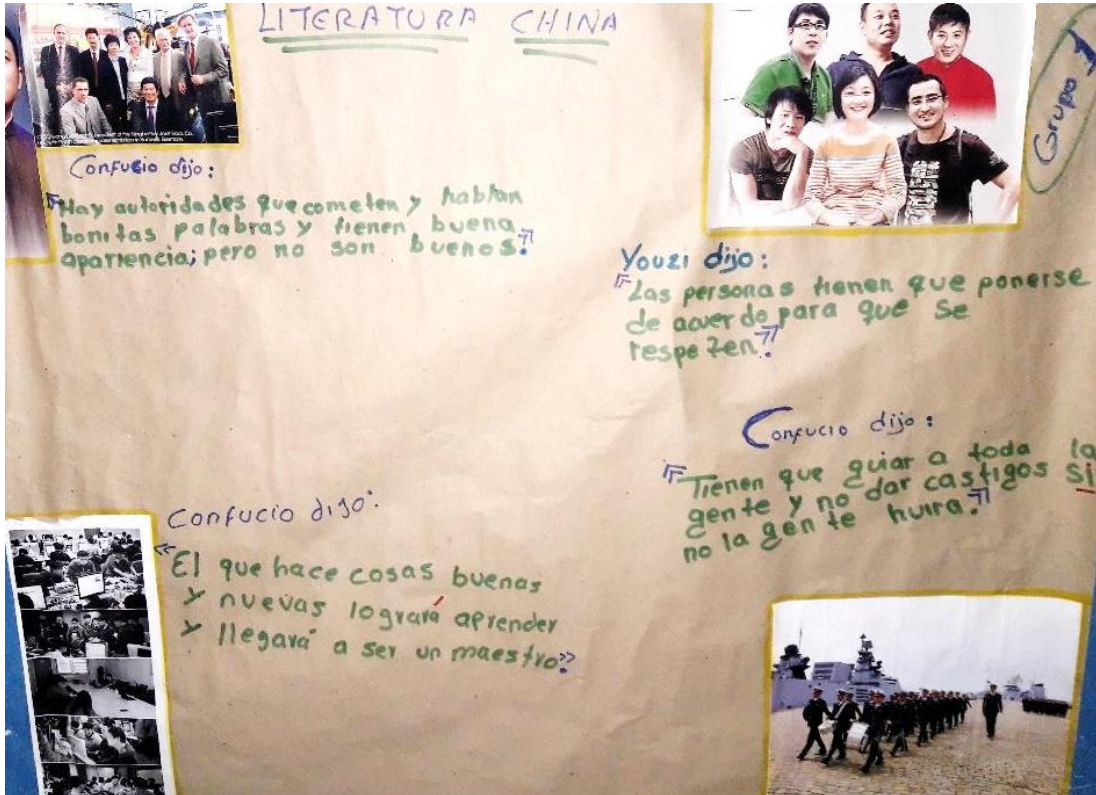 LITERATURA CHINA
Grupo 1
Confucio dijo:
"Hay autoridades que cometen y hablan
bonitas palabras y tienen buena
apariencia; pero no son buenos".
Youzi dijo:
"Las personas tienen que ponerse
de acuerdo para que se
respeten".
Confucio dijo:
"Tienen que guiar a toda la
gente y no dar castigos si
no la gente huira."
Confucio dijo:
"El que hace cosas buenas
y nuevas logrará aprender
y llegará a ser un maestro".